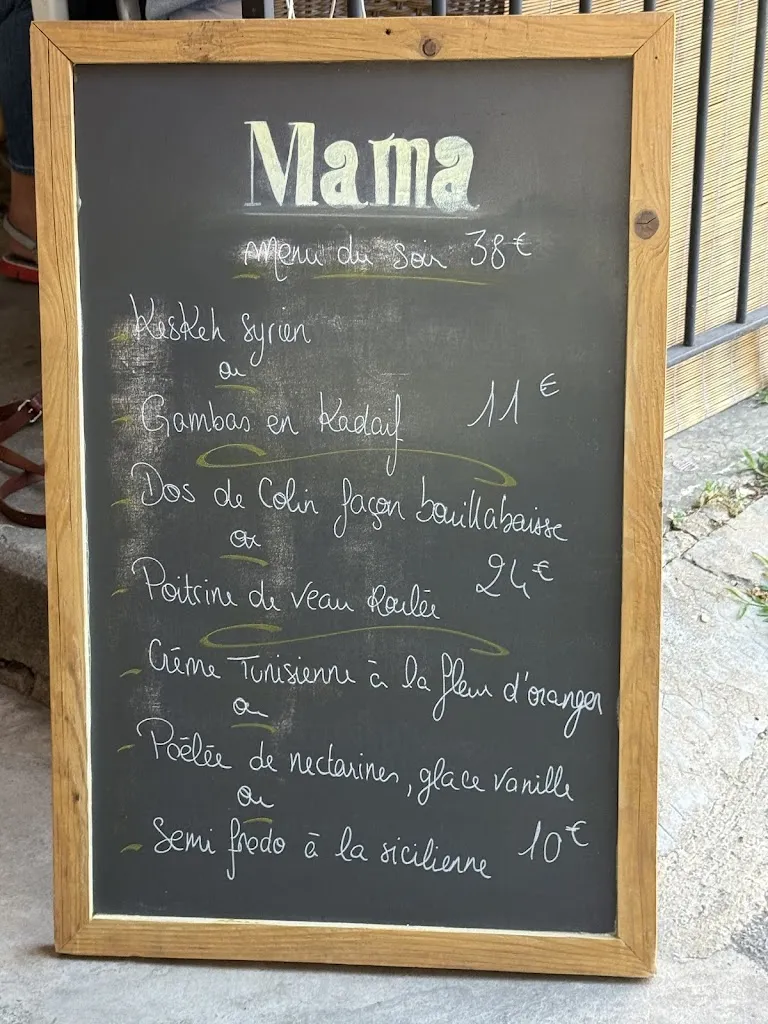 Mama
Menu du soir 38€
- Keskeh Syrien
ou
- Gambas en Kadaif 11€
- Dos de Colin façon bouillabaisse
ou
- Poitrine de veau Roulée 24€
- Crème Tunisienne à la fleur d'oranger
ou
- Poêlée de nectarines, glace vanille
ou
- Semi fredo à la sicilienne 10€